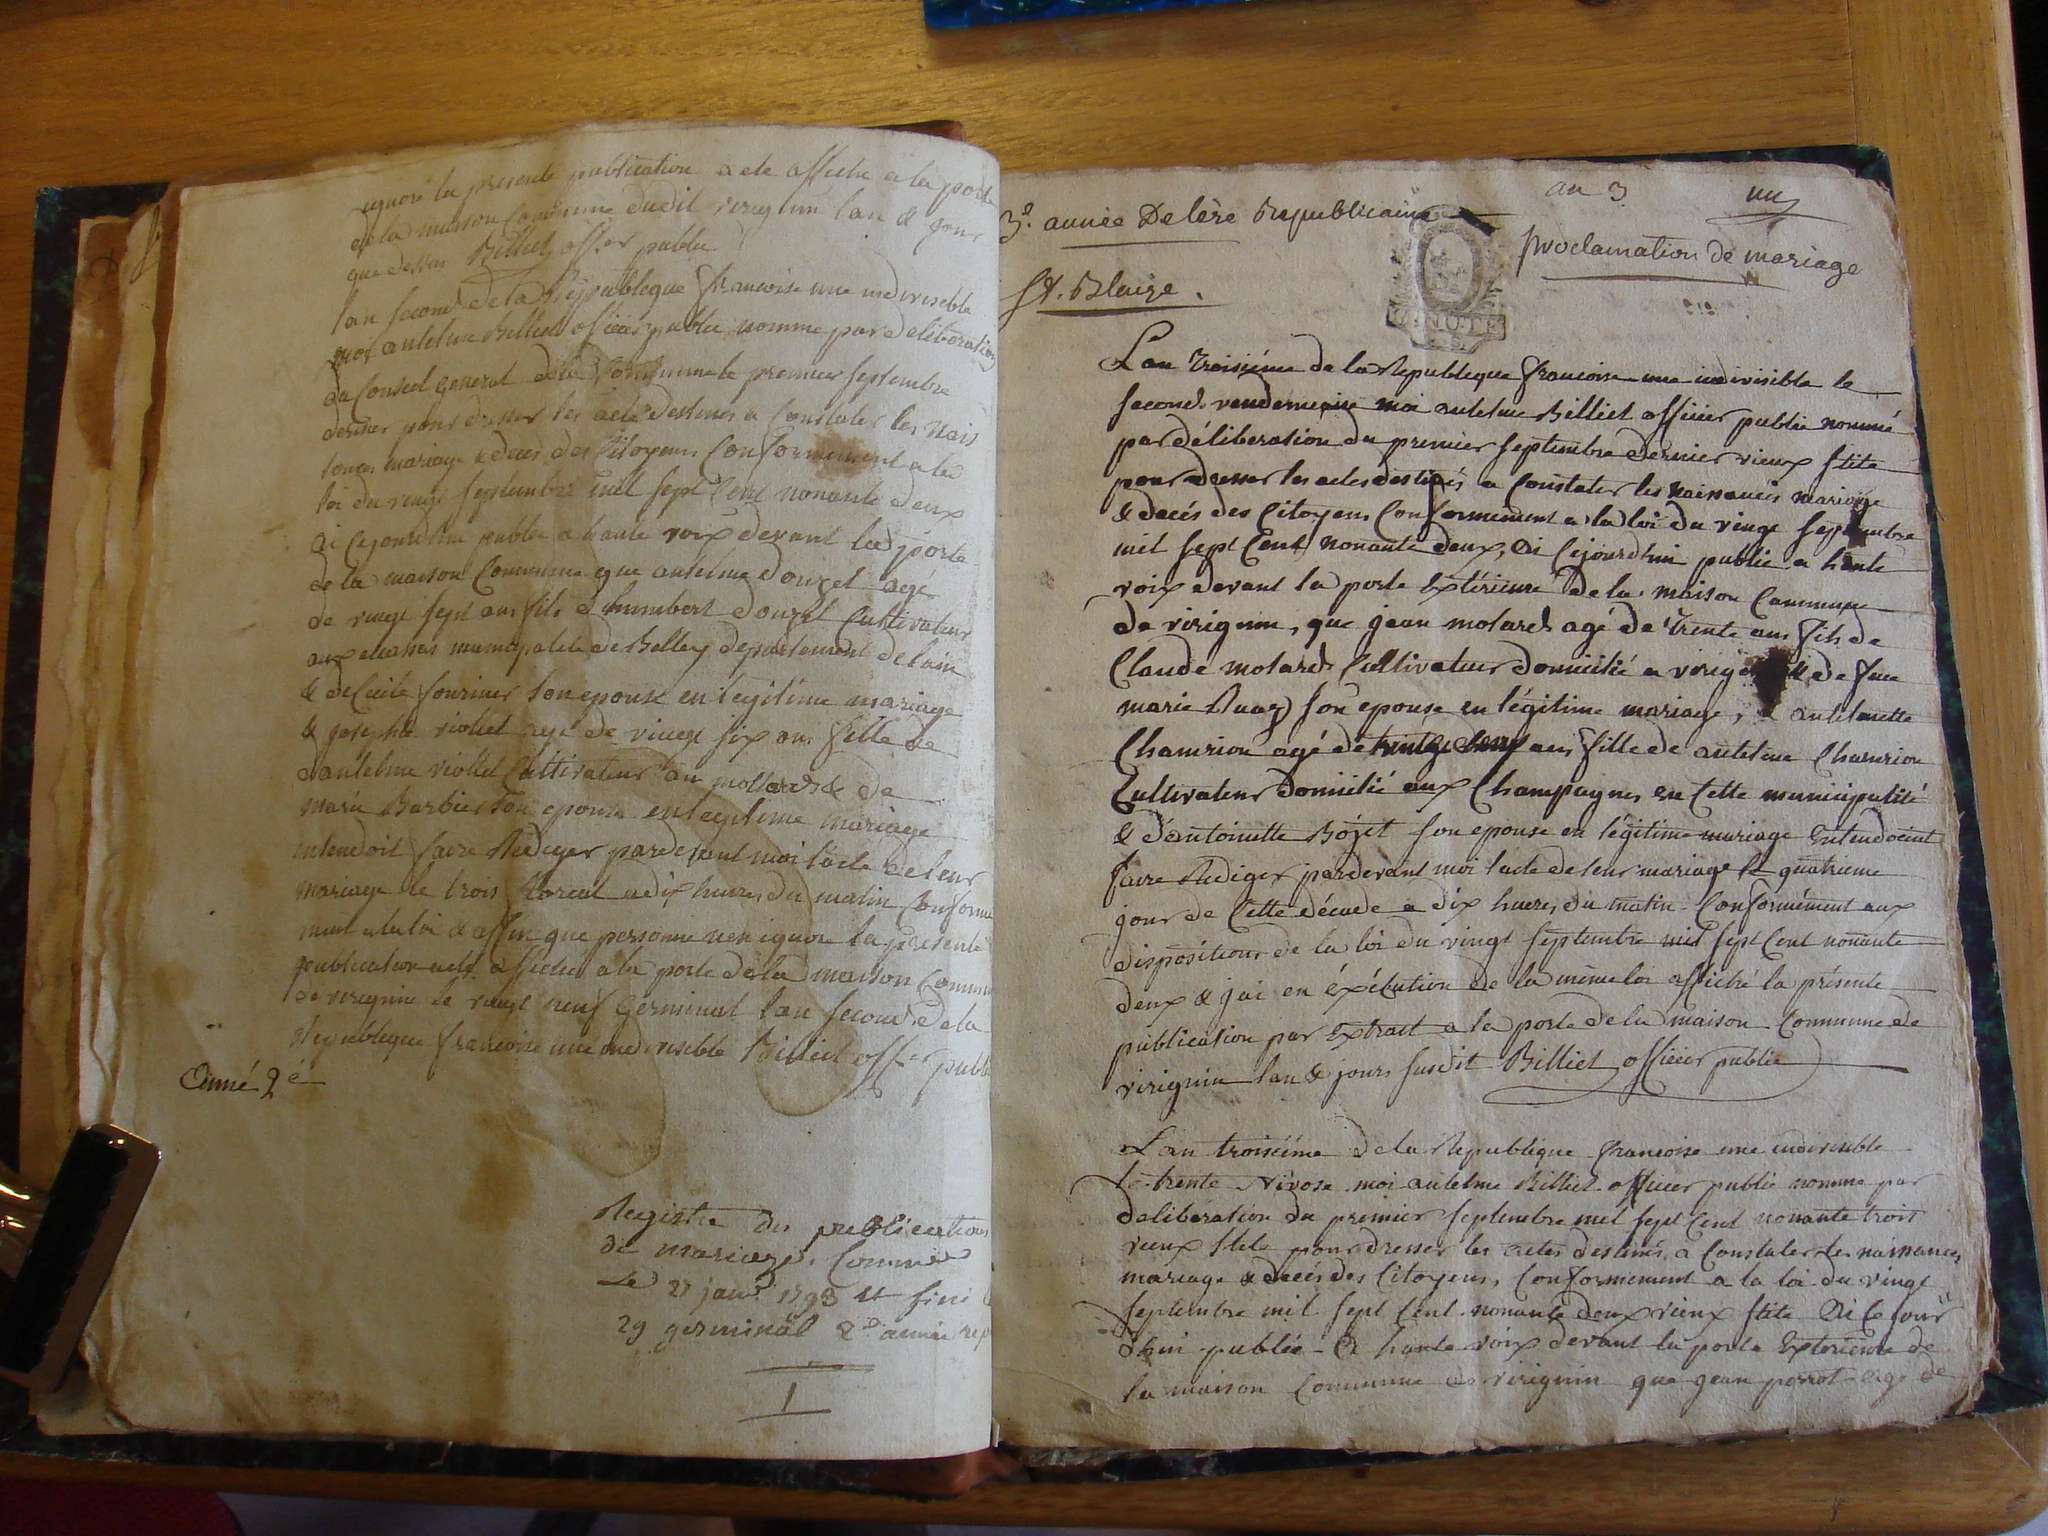 ignore la presente publication a ete affiché a la porte
de la maison Commune dudit virignin lan & jour
que dessus Billiet off.er public
lan second de la Republeque francoise une indiviseble
moi antelme Billiet officier public nommé par deliberation
du Conseil general de la Commune le premier septembre
dernier pour dresser les acte destines a Constater les Nais
sences mariage & deces des Citoyens Conformement a la
loi du vingt septembre mil sept Cent nonante deux
ai Cejourdhui publié a haute voix devant la porte
de la maison Commune que antelme douzet agé
de vingt sept ans fils d humbert douzet Cultivateur
aux municipalité de Belley departement de lain
& de Cecile son epouse en legitime mariage
& josephte viollet agé de vingt six ans fille de
dantelme viollet Cultivateur au mollard & de
marie Barbier son epouse en legitime mariage
entendoit faire Rediger pardevant moi lacte de leur
mariage le trois floreal a dix heures du matin Conforme
ment a la loi & affin que personne nen ignore la presente
publication a ete affichée a la porte de la maison Commune
de virignin le vingt neuf Germinal lan second de la
Republeque francoise une indiviseble Billiet off.er public
Anné 2é
Registre des publications
de mariages. Commencé
Le 27 janv.r 1793 et fini
29 germinal 2.e année rep
1
an 3
un
3.e année De lère Republicaine
proclamation de mariage
St. Blaize.
Lan troisiéme de la Republeque francoise une indivisible le
second vendemeaire moi antelme Billiet officier public nommé
par déliberation du premier septembre dernier vieux stile
pour dresser les actes destinés a Constater les naissances mariage
& decés des Citoyens Conformement a la loi du vingt septembre
mil sept Cent nonante deux, ai Cejourdhui publié a haute
voix devant la porte Extérieure de la maison Commune
de virignin, que jean molard agé de trente ans fils de
Claude molard Cultivateur domicilié a virignin & de feue
marie son epouse en légitime mariage, & antelmette
Chamrion agé de ans fille de antelme Chamrion
Cultivateur domicilié aux Champagnes en Cette municipalité
& d'antoinette Bojet son epouse en légitime mariage Entendoient
faire Rediger pardevant moi lacte de leur mariage le quatrieme
jour de Cette décade a dix heures du matin Conformément aux
dispositions de la loi du vingt septembre mil sept Cent nonante
deux & jai en éxécution de la même loi affiché la présente
publication par Extrait a la porte de la maison Commune de
virignin lan & jours susdit Billiet officier public
Lan troisiéme de la Republique francoise une indivisible
le trente Nivose moi antelme Billiet officier public nommé par
deliberation du premier septembre mil sept Cent nonante trois
vieux stile pour dresser les actes destinés a Constater les naissances
mariage & decés des Citoyens, Conformement a la loi du vingt
septembre mil sept Cent nonante deux vieux stile ai Ce jour
dhui publié a haute voix devant la porte Exterieure de
la maison Commune de virignin que jean perrot agé de